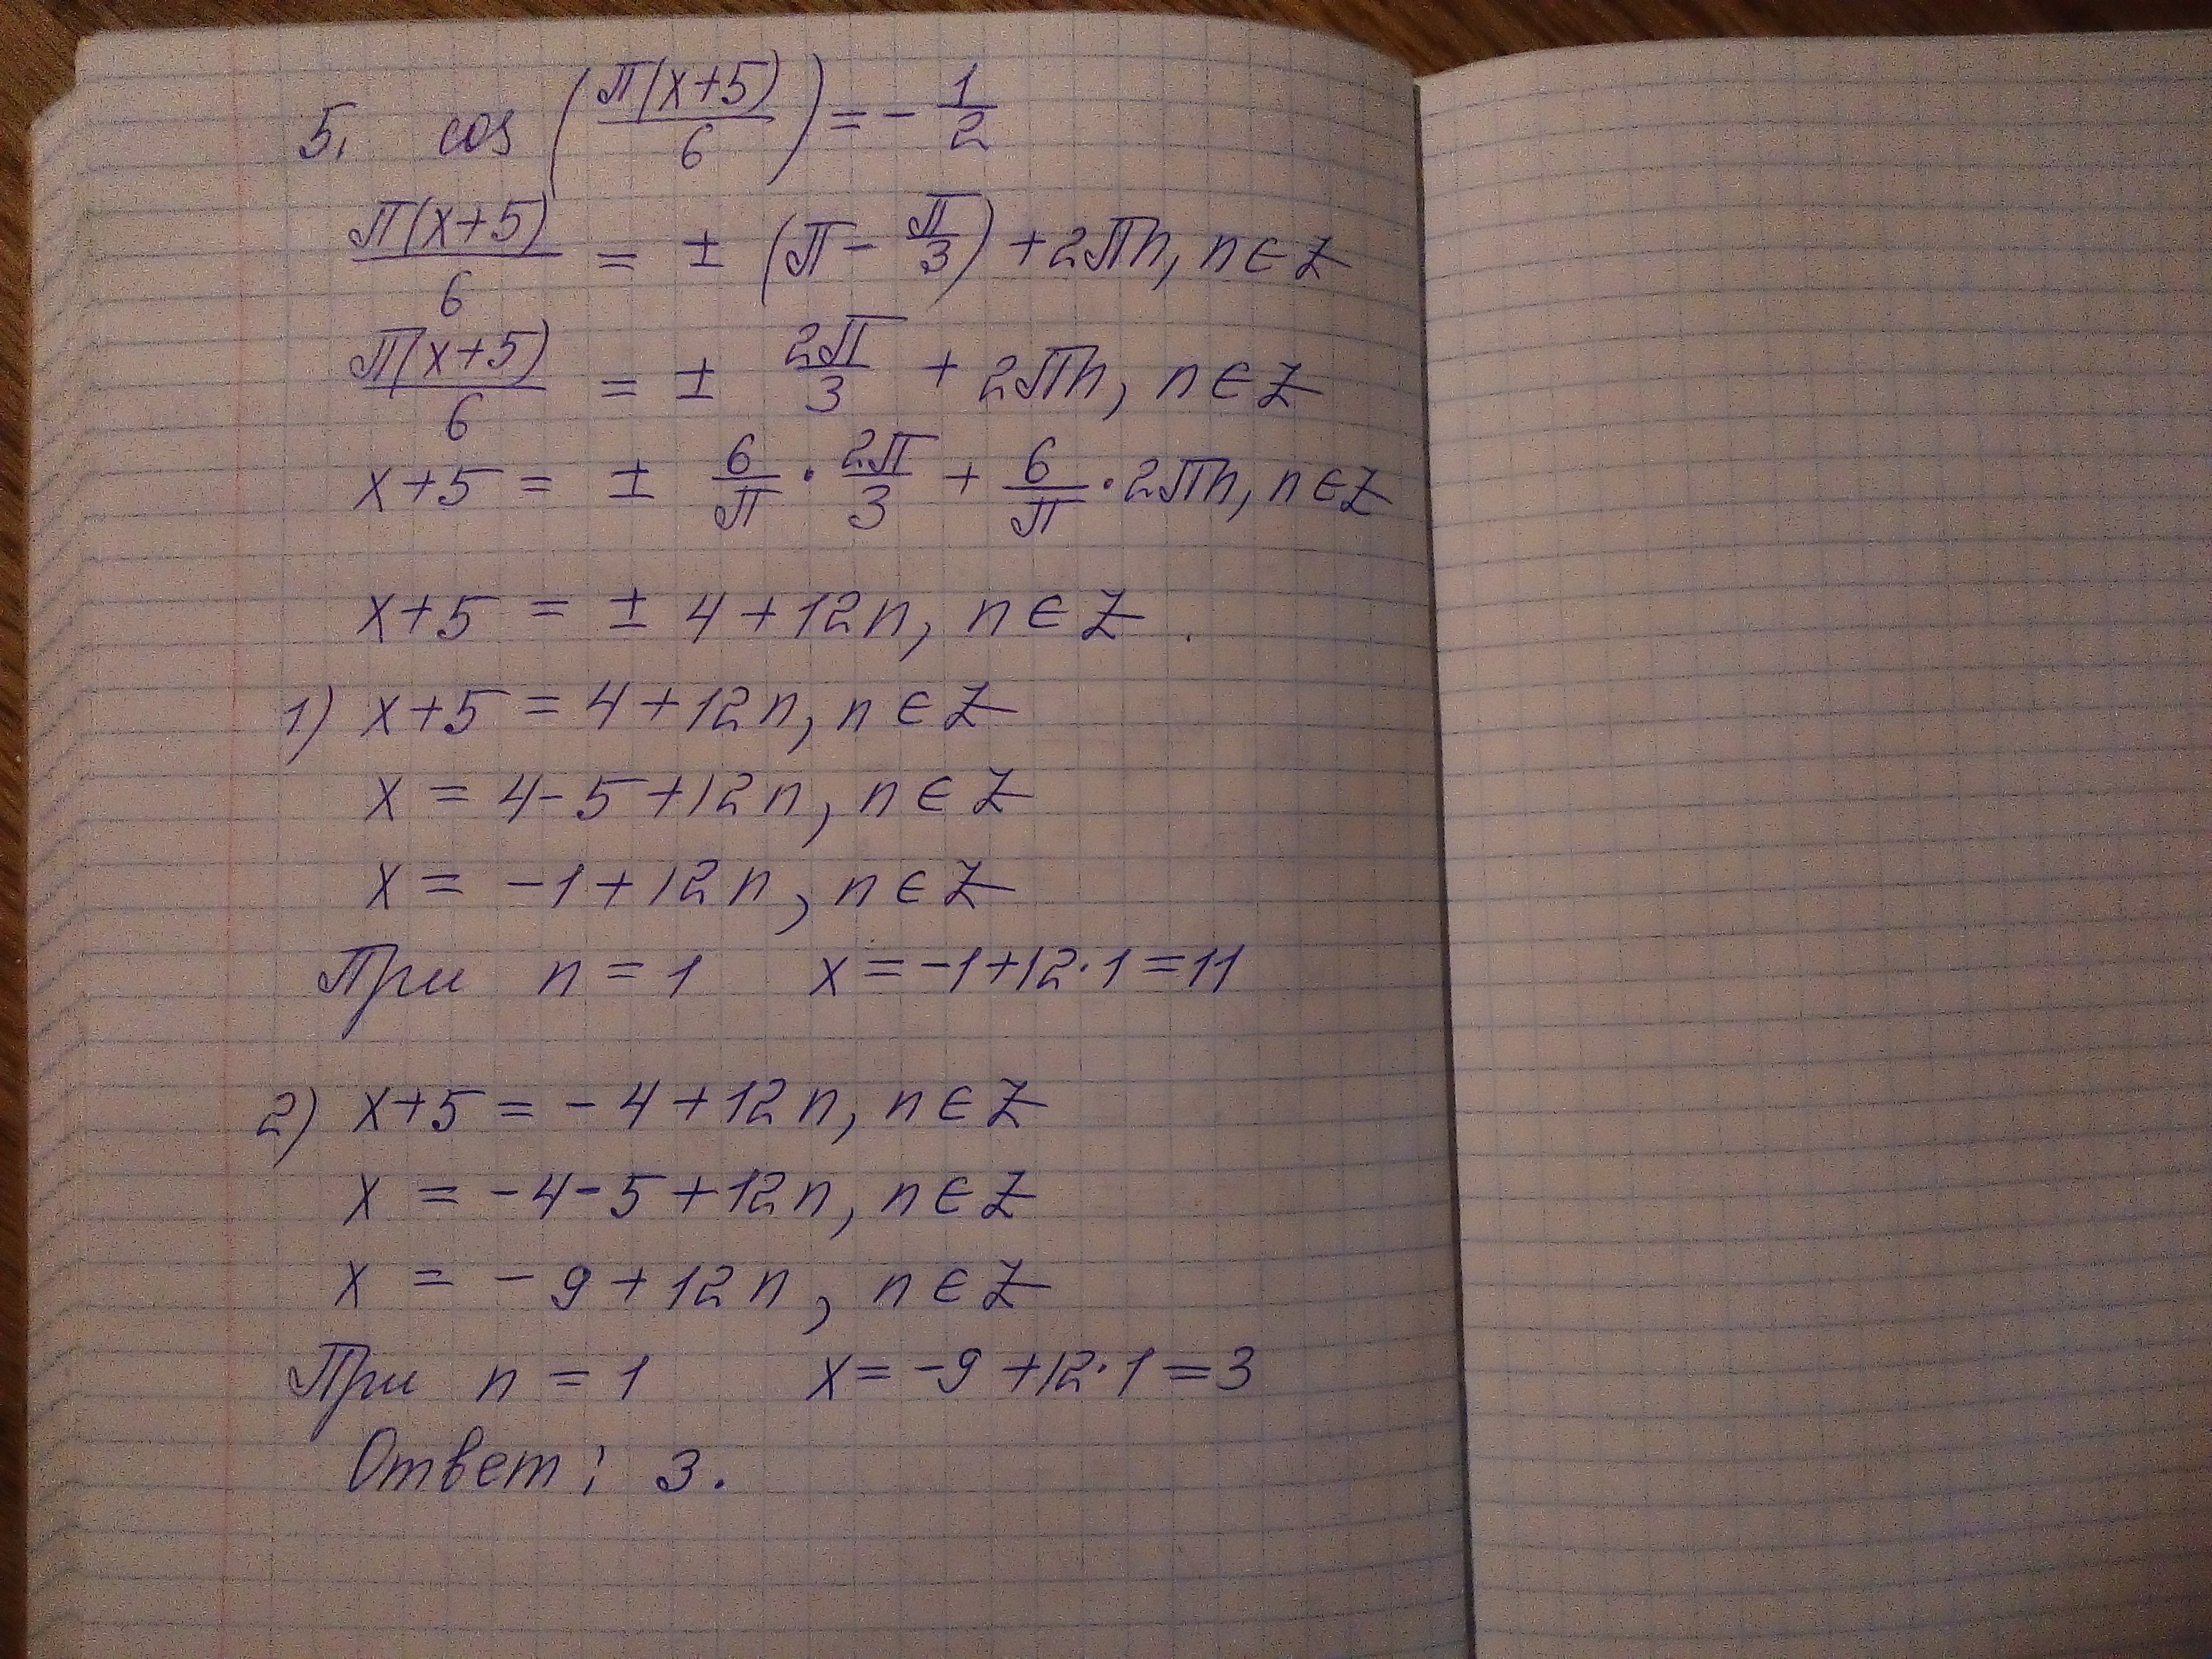 5. cos(π(x+5)/6) = -1/2
π(x+5)/6 = ± (π - π/3) + 2πn, n∈Z
π(x+5)/6 = ± 2π/3 + 2πn, n∈Z
x+5 = ± 6/π · 2π/3 + 6/π · 2πn, n∈Z
x+5 = ± 4+12n, n∈Z.
1) x+5 = 4+12n, n∈Z
x = 4-5+12n, n∈Z
x = -1+12n, n∈Z
При n = 1 x = -1+12·1=11
2) x+5 = -4+12n, n∈Z
x = -4-5+12n, n∈Z
x = -9+12n, n∈Z
При n = 1 x = -9+12·1=3
Ответ: 3.